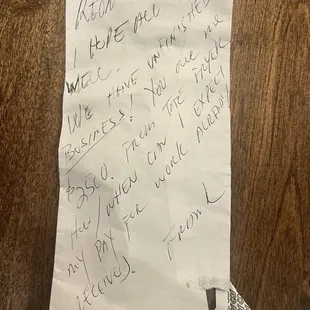 I HOPE ALL
WELL.
WE HAVE UNFINISHED
BUSINESS! YOU OWE ME
$2500. FROM THE FRYER
WHEN CAN I EXPECT
MY PAY FOR WORK ALREADY
RECEIVED.
FRANK